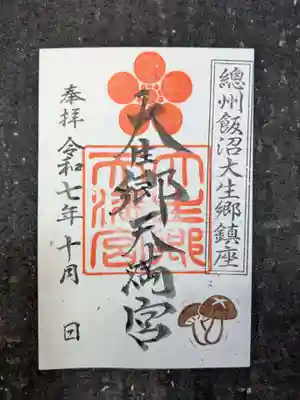 總州飯沼大生郷鎮座
大生郷天満宮
大生郷天満宮
奉拝 令和七年十月 日